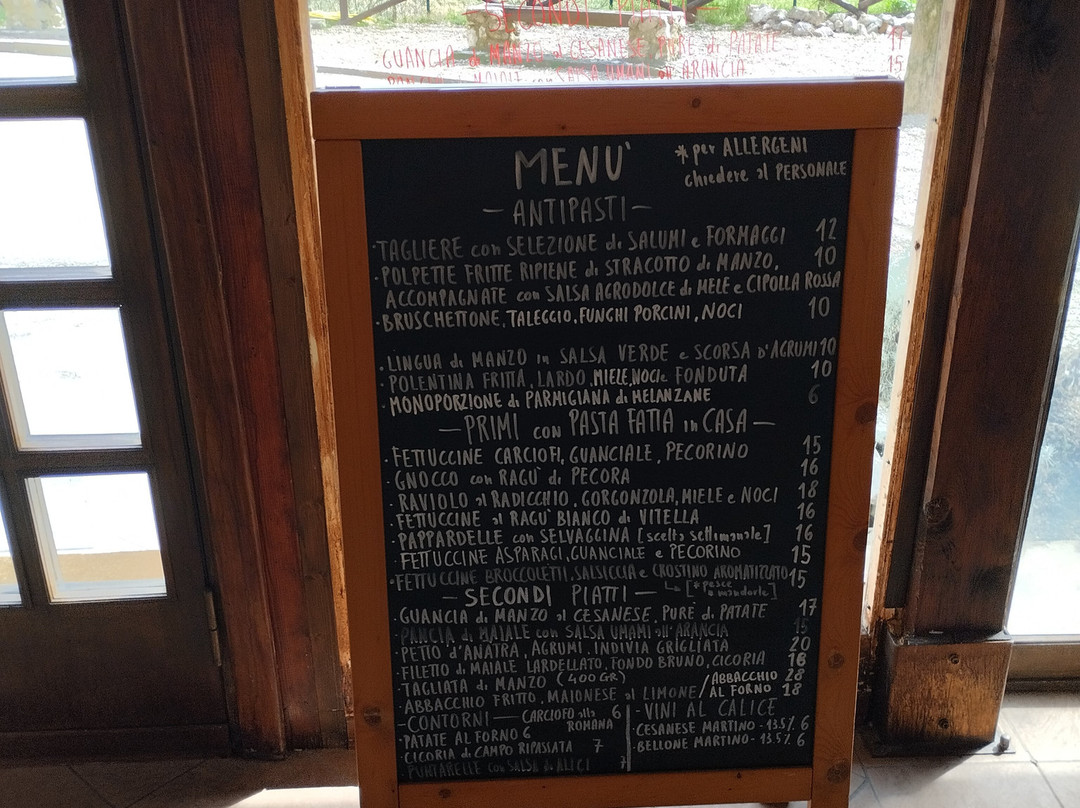 SECONDI PIATTI
GUANCIA di MANZO al CESANESE PURE di PATATE 17
PANCIA MAIALE con SALSA UMAMI all' ARANCIA 15
MENU'
* per ALLERGENI
chiedere al PERSONALE
— ANTIPASTI —
· TAGLIERE con SELEZIONE di SALUMI e FORMAGGI 12
· POLPETTE FRITTE RIPIENE di STRACOTTO di MANZO, 10
ACCOMPAGNATE con SALSA AGRODOLCE di MELE e CIPOLLA ROSSA
· BRUSCHETTONE, TALEGGIO, FUNGHI PORCINI, NOCI 10
· LINGUA di MANZO in SALSA VERDE e SCORSA D'AGRUMI 10
· POLENTINA FRITTA, LARDO, MIELE, NOCI e FONDUTA 10
· MONOPORZIONE di PARMIGIANA di MELANZANE 6
— PRIMI con PASTA FATTA in CASA —
· FETTUCCINE CARCIOFI, GUANCIALE, PECORINO 15
· GNOCCO con RAGÙ di PECORA 16
· RAVIOLO al RADICCHIO, GORGONZOLA, MIELE e NOCI 18
· FETTUCCINE al RAGÙ BIANCO di VITELLA 16
· PAPPARDELLE con SELVAGGINA [scelta settimanale] 16
· FETTUCCINE ASPARAGI, GUANCIALE e PECORINO 15
· FETTUCCINE BROCCOLETTI, SALSICCIA e CROSTINO AROMATIZZATO 15
[* pesce * mandorle]
— SECONDI PIATTI —
· GUANCIA di MANZO al CESANESE, PURÈ di PATATE 17
· PANCIA di MAIALE con SALSA UMAMI all'ARANCIA 15
· PETTO d'ANATRA, AGRUMI, INDIVIA GRIGLIATA 20
· FILETTO di MAIALE LARDELLATO, FONDO BRUNO, CICORIA 18
· TAGLIATA di MANZO (400 GR) 28
· ABBACCHIO FRITTO, MAIONESE al LIMONE / ABBACCHIO AL FORNO 18
— CONTORNI —
CARCIOFO alla ROMANA 6
· PATATE AL FORNO 6
· CICORIA di CAMPO RIPASSATA 7
· PUNTARELLE con SALSA di ALICI 7
- VINI AL CALICE
· CESANESE MARTINO - 13.5% 6
· BELLONE MARTINO - 13.5% 6